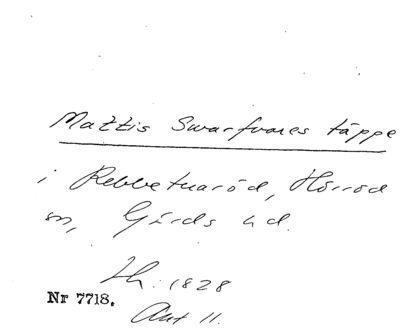 Mattis Swarfvares täppe
i Rebbetuaröd, Hörröd
sn, Gärds hd.
Lh. 1828
Nr 7718.
Akt 11.